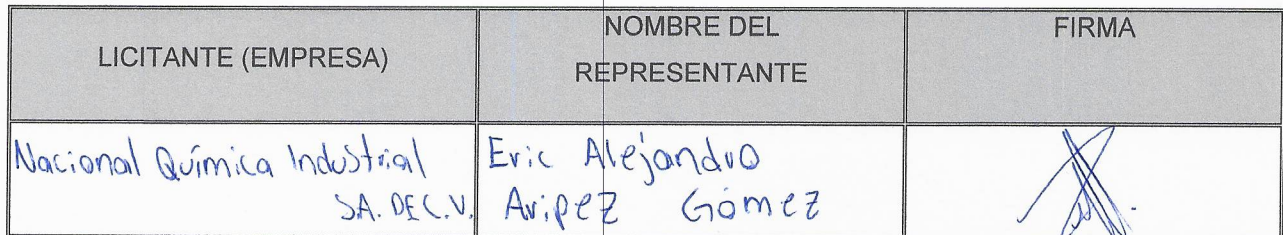 LICITANTE (EMPRESA)
NOMBRE DEL
REPRESENTANTE
FIRMA
Nacional Química Industrial
S.A. DE C.V.
Eric Alejandro
Aripez Gómez